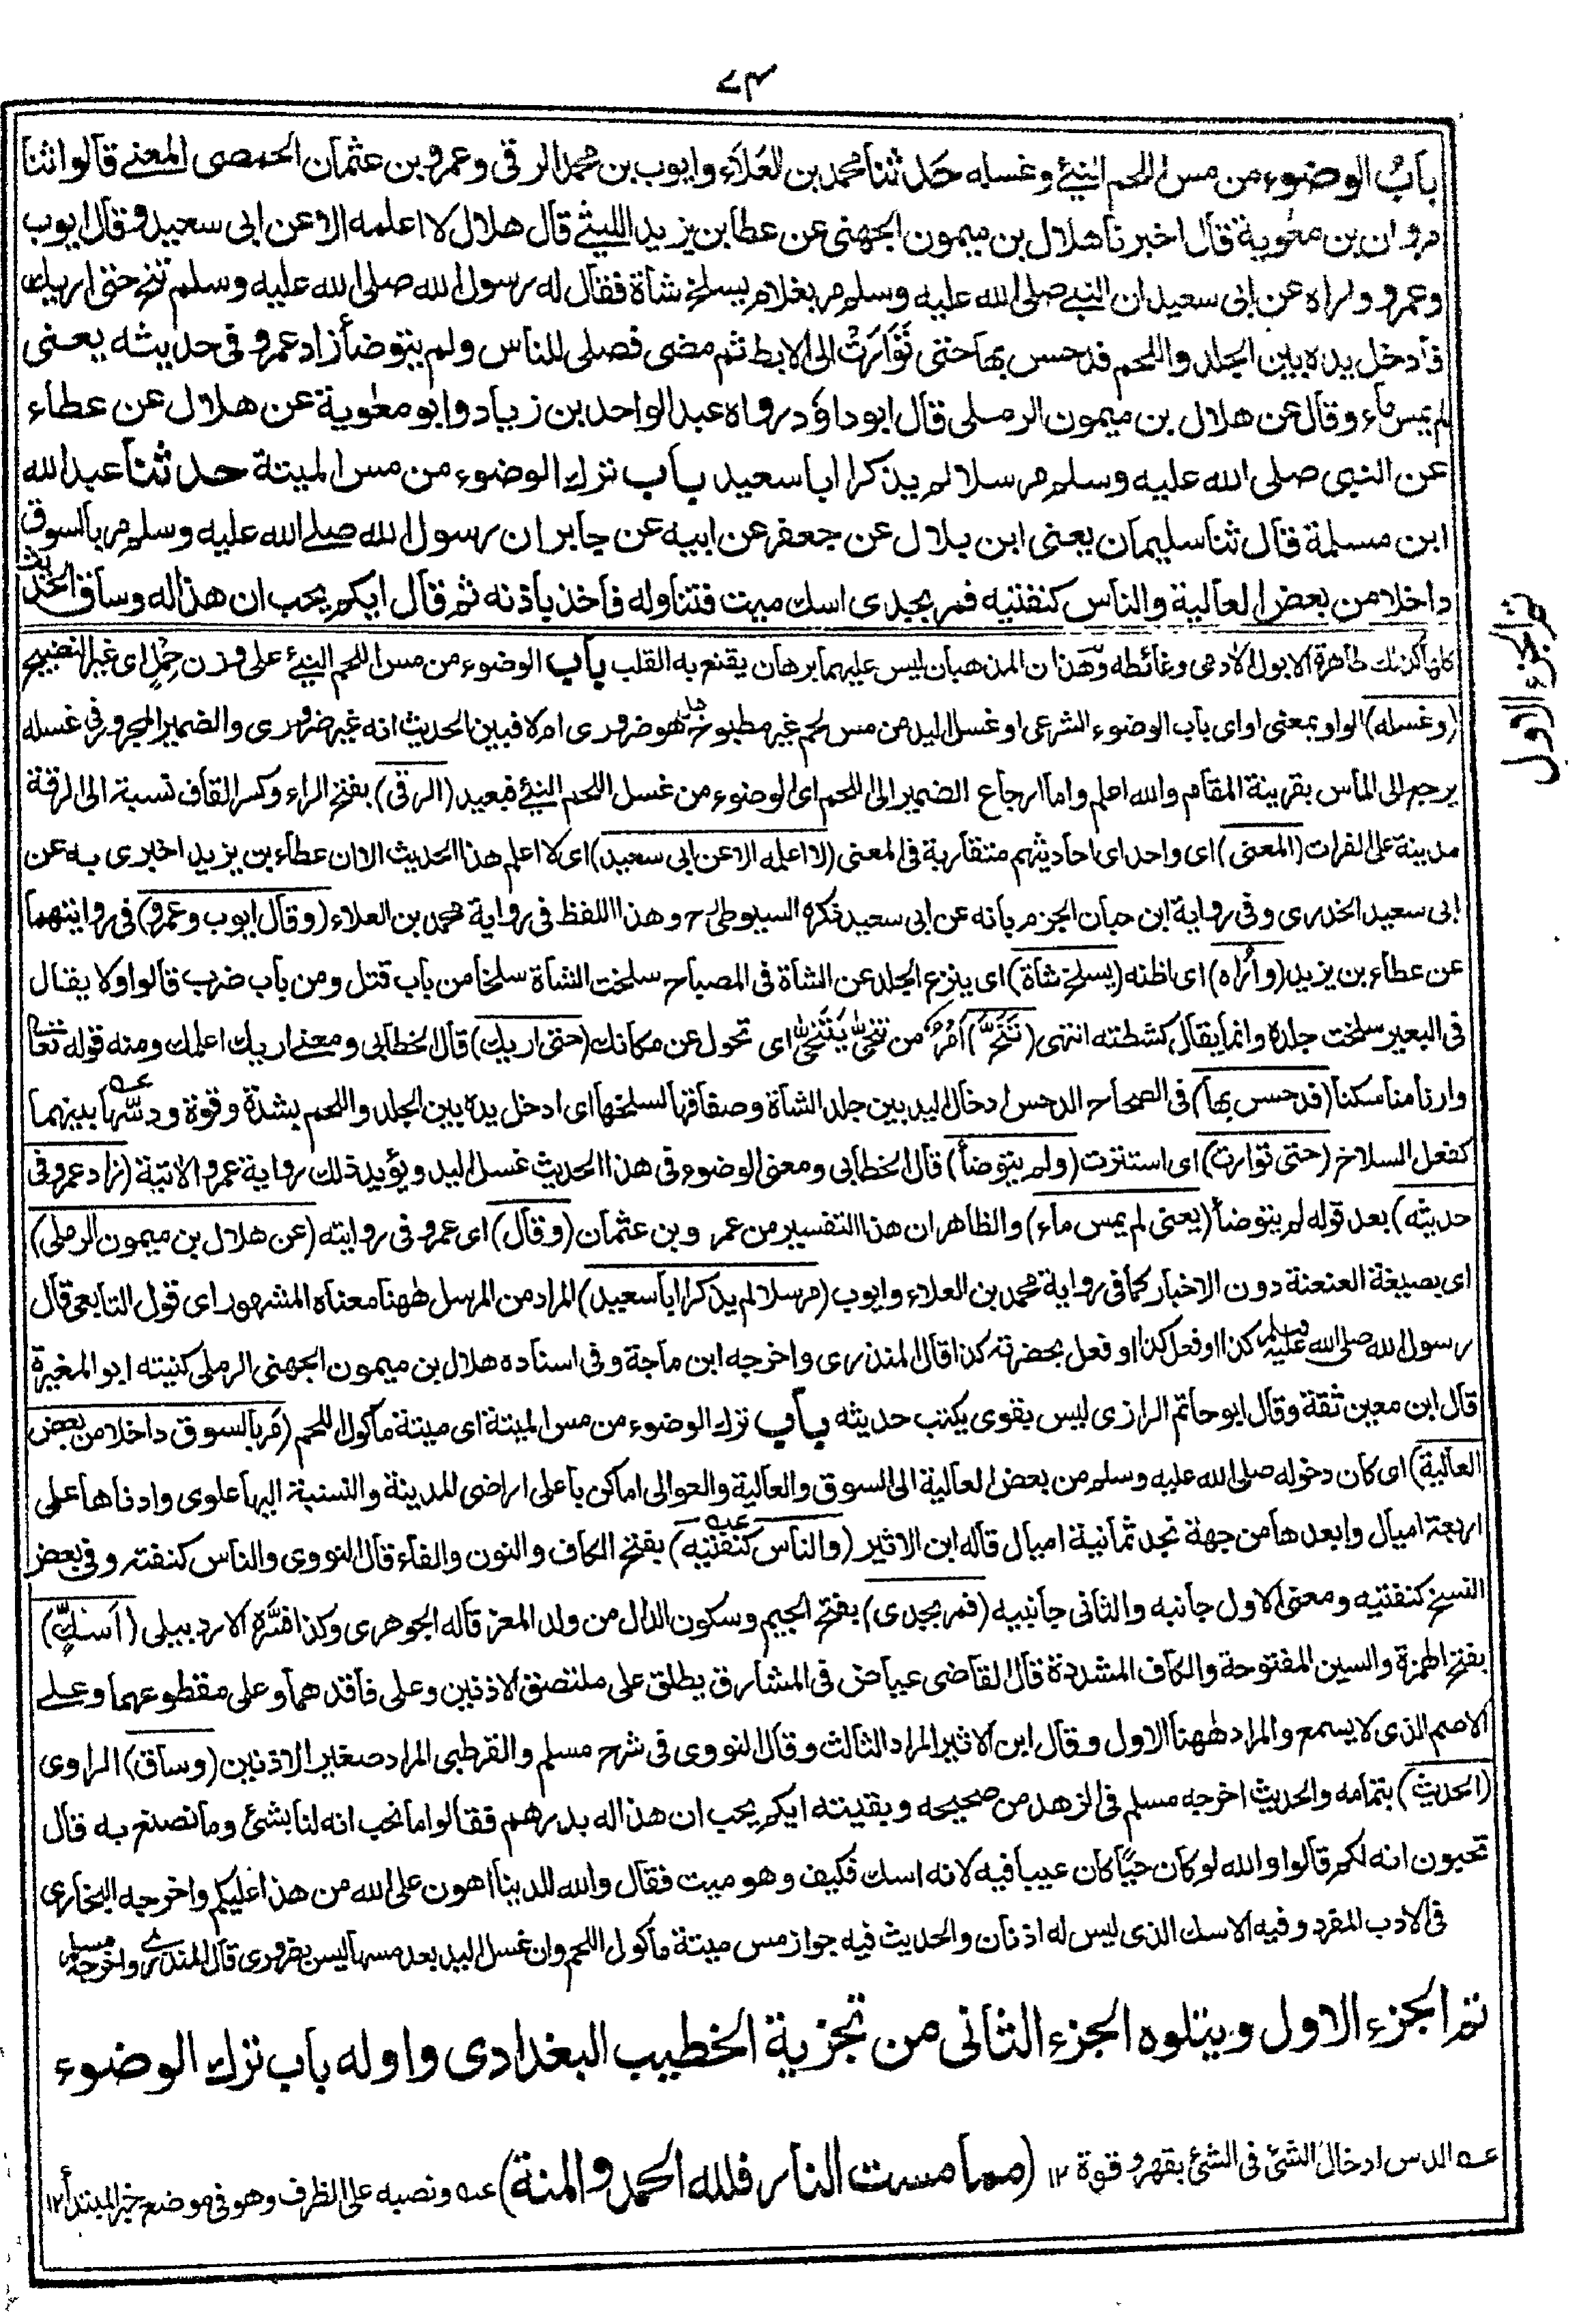 ٧٤
باب الوضوء من مس اللحم النيئ وغسله حدثنا محمد بن العلاء وايوب بن محمد الرقى وعمرو بن عثمان الحمصى المعنے قالوا ثنا
مروان بن معٰوية قال اخبرنا هلال بن ميمون الجهنى عن عطا بن يزيد الليثے قال هلال لا اعلمه الا عن ابى سعيد وقال ايوب
وعمرو واراه عن ابى سعيد ان النبے صلى الله عليه وسلم مر بغلام يسلخ شاة فقال له رسول الله صلى الله عليه وسلم تنح حتى اريك
فادخل يده بين الجلد واللحم فدحس بها حتى تَوَارَتْ الى الابط ثم مضى فصلى للناس ولم يتوضأ زاد عمرو فى حديثه يعنى
لم يمس ماء وقال عن هلال بن ميمون الرملى قال ابو داؤد رواه عبد الواحد بن زياد وابو معٰوية عن هلال عن عطاء
عن النبى صلى الله عليه وسلم مرسلا لم يذكرا ابا سعيد باب ترك الوضوء من مس الميتة حدثنا عبد الله
ابن مسلمة قال ثنا سليمان يعنى ابن بلال عن جعفر عن ابيه عن جابر ان رسول الله صلے الله عليه وسلم مر بالسوق
داخلا من بعض العالية والناس كنفتيه فمر بجدى اسك ميت فتناوله فاخذ باذنه ثم قال ايكم يحب ان هذا له وساق الحديث
كلها كذلك طاهرة الا بول الادمى وغائطه وهذان المذهبان ليس عليهما برهان يقنع به القلب باب الوضوء من مس اللحم النيئ على وزن حِمْلٍ اى غير النضيج
(وغسله) الواو بمعنى او اى باب الوضوء الشرعى او غسل اليد من مس لحم غير مطبوخ هل هو ضرورى ام لا فبين الحديث انه غير ضرورى والضمير المجرور فى غسله
يرجع الى الماس بقرينة المقام والله اعلم واما ارجاع الضمير الى اللحم اى الوضوء من غسل اللحم النيئ فبعيد (الرقى) بفتح الراء وكسر القاف نسبة الى الرقة
مدينة على الفرات (المعنى) اى واحد اى احاديثهم متقاربة فى المعنى (لا اعلمه الا عن ابى سعيد) اى لا اعلم هذا الحديث الا ان عطاء بن يزيد اخبرى به عن
ابى سعيد الخدرى وفى رواية ابن حبان الجزم بانه عن ابى سعيد ذكره السيوطى رح وهذا اللفظ فى رواية محمد بن العلاء (وقال ايوب وعمرو) فى روايتهما
عن عطاء بن يزيد (وأُراه) اى اظنه (يسلخ شاة) اى ينزع الجلد عن الشاة فى المصباح سلخت الشاة سلخا من باب قتل ومن باب ضرب قالوا ولا يقال
فى البعير سلخت جلدة وانما يقال كشطته انتهى (تَنَحَّ) أمْرٌ من تَنَحّٰى يَتَنَحّٰى اى تحول عن مكانك (حتى اريك) قال الخطابى ومعنے اريك اعلمك ومنه قوله تعالى
وارنا مناسكنا (فدحس بها) فى الصحاح الدحس ادخال اليد بين جلد الشاة وصفاقها لسلخها اى ادخل يده بين الجلد واللحم بشدة وقوة ودسَّها عــه بينهما
كفعل السلاخ (حتى توارت) اى استترت (ولم يتوضأ) قال الخطابى ومعنى الوضوء فى هذا الحديث غسل اليد ويؤيد ذلك رواية عمرو الاتية (زاد عمرو فى
حديثه) بعد قوله لم يتوضأ (يعنى لم يمس ماء) والظاهر ان هذا التفسير من عمرو بن عثمان (وقال) اى عمرو فى روايته (عن هلال بن ميمون الرملى)
اى بصيغة العنعنة دون الاخبار كما فى رواية محمد بن العلاء وايوب (مرسلا لم يذكرا ابا سعيد) المراد من المرسل هٰهنا معناه المشهور اى قول التابعى قال
رسول الله صلى الله عليه وسلم كذا او فعل كذا او فعل بحضرته كذا قال المنذرى واخرجه ابن ماجة وفى اسناده هلال بن ميمون الجهنى الرملى كنيته ابو المغيرة
قال ابن معين ثقة وقال ابو حاتم الرازى ليس بقوى يكتب حديثه باب ترك الوضوء من مس الميتة اى ميتة ماكول اللحم (مَر بالسوق داخلا من بعض
العالية) اى كان دخوله صلى الله عليه وسلم من بعض العالية الى السوق والعالية والعوالى اماكن باعلى اراضى المدينة والنسبة اليها علوى وادناها على
اربعة اميال وابعدها من جهة نجد ثمانية اميال قاله ابن الاثير (والناس كنفتيه عــه) بفتح الكاف والنون والفاء قال النووى والناس كنفته وفى بعض
النسخ كنفتيه ومعنى الاول جانبه والثانى جانبيه (فمر بجدى) بفتح الجيم وسكون الدال من ولد المعز قاله الجوهرى وكذا فسَّره الاردبيلى (اَسَكٍّ)
بفتح الهمزة والسين المفتوحة والكاف المشددة قال القاضى عياض فى المشارق يطلق على ملتصق الاذنين وعلى فاقدهما وعلى مقطوعهما وعلے
الاصم الذى لا يسمع والمراد هٰهنا الاول وقال ابن الاثير المراد الثالث وقال النووى فى شرح مسلم والقرطبى المراد صغير الاذنين (وساق) الراوى
(الحديث) بتمامه والحديث اخرجه مسلم فى الزهد من صحيحه وبقيته ايكم يحب ان هذا له بدرهم فقالوا ما نحب انه لنا بشئ وما نصنع به قال
تحبون انه لكم قالوا والله لو كان حيًّا كان عيبا فيه لانه اسك فكيف وهو ميت فقال والله للدنيا اهون على الله من هذا عليكم واخرجه البخارى
فى الادب المفرد وفيه الاسك الذى ليس له اذنان والحديث فيه جواز مس ميتة ماكول اللحم وان غسل اليد بعد مسها ليس بضرورى قال المنذرى واخرجه مسلم
تم الجزء الاول ويتلوه الجزء الثانى من تجزية الخطيب البغدادى واوله باب ترك الوضوء
(مما مست النار فلله الحمد والمنة)
عــه الدس ادخال الشئ فى الشئ بقهر وقوة ١٢
عــه ونصبه على الظرف وهو فى موضع خبر المبتدأ ١٢
تم الجزء الاول